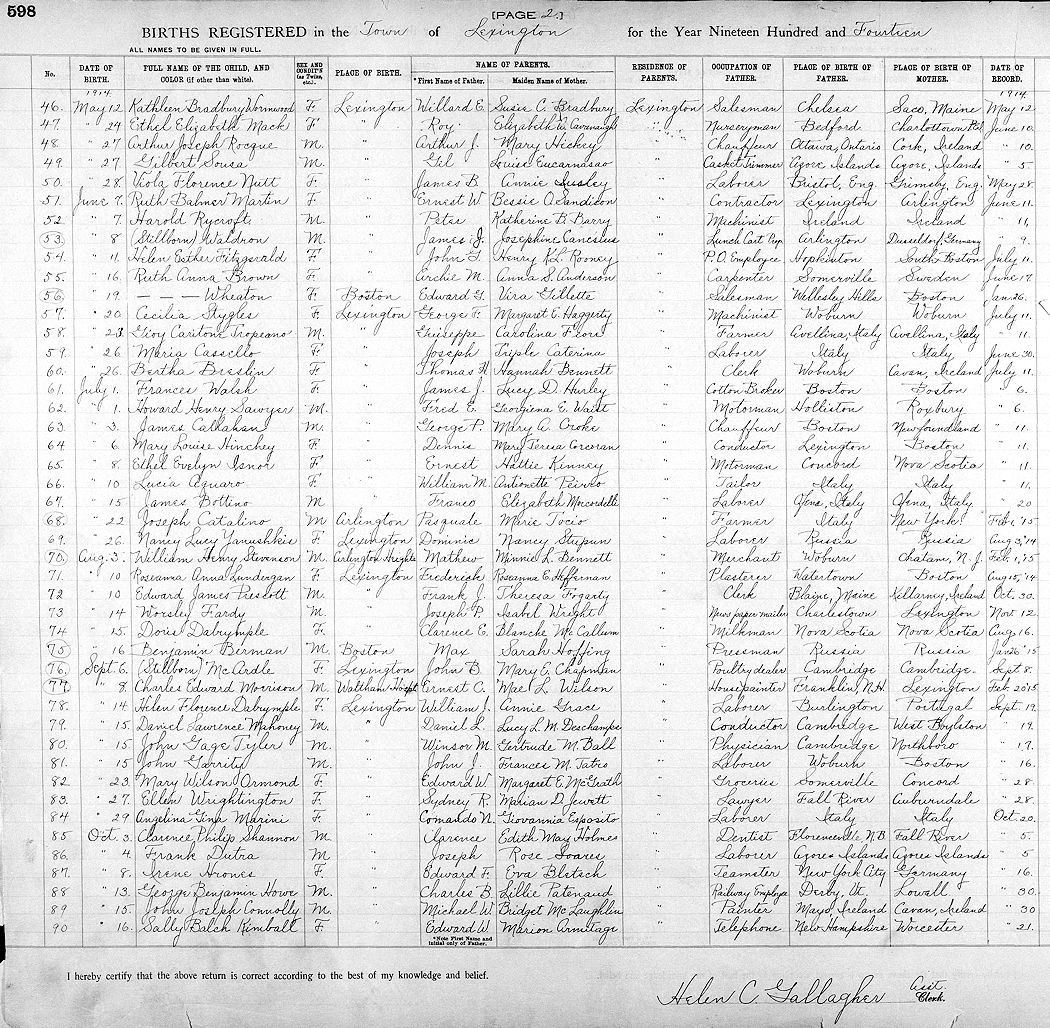 598
[PAGE 2.]
BIRTHS REGISTERED in the Town of Lexington for the Year Nineteen Hundred and Fourteen
ALL NAMES TO BE GIVEN IN FULL.
No. DATE OF BIRTH. FULL NAME OF THE CHILD, AND COLOR (if other than white). SEX AND CONDIT'N (as Twins, etc.) PLACE OF BIRTH. NAME OF PARENTS. *First Name of Father. Maiden Name of Mother. RESIDENCE OF PARENTS. OCCUPATION OF FATHER. PLACE OF BIRTH OF FATHER. PLACE OF BIRTH OF MOTHER. DATE OF RECORD.
1914 1914
46. May 12 Kathleen Bradbury Wormwood F. Lexington Willard E. Susie C. Bradbury Lexington Salesman Chelsea Saco, Maine May 12
47. " 24 Ethel Elizabeth Mack F " Roy Elizabeth Cavanaugh " Nurseryman Bedford June 10
48. " 27 Arthur Joseph Rocque M. " Arthur J. Mary Hickey " Chauffeur Ottawa, Ontario Cork, Ireland " 10
49. " 27 Gilbert Sousa M. " Gil Louise Eucarnasao " Casket Trimmer Azore Islands Azore, Islands " 5
50. " 28. Viola Florence Nutt F. " James B. Annie " Laborer Bristol, Eng. Grimsby, Eng. May 28
51. June 7. Ruth Balmer Martin F " Ernest W. Bessie O. Sandison " Contractor Lexington Arlington June 11.
52. " 7. Harold Rycroft M. " Peter Katherine B. Barry " Machinist Ireland Ireland " 11,
53. " 8 (Stillborn) Waldron M. " James J. Josephine Canesius " Lunch Cart Prop. Arlington Dusseldorf, Germany " 9.
54. " 11. Helen Esther Fitzgerald F " John T. Henry K.L. Rooney " P.O. Employee Hopkinton South Boston July 11.
55. " 16. Ruth Anna Brown F " Archie M. Anna S. Anderson " Carpenter Somerville Sweden June 17
56. " 19. — — — Wheaton F. Boston Edward G. Vera Gillette " Salesman Wellesley Hills Boston Jan 26.
57. " 20 Cecilia Stygles F. Lexington George F. Margaret E. Haggerty " Machinist Woburn Woburn July 11.
58. " 23. Tropeano M. " Giuseppe Carolina Fiore " Farmer Avellina, Italy Avellina, Italy " 11
59. " 26. Maria Cassello F. " Joseph Caterina " Laborer Italy Italy June 30.
60. " 26. Bertha Breslin F. " Thomas H. Hannah Bennett " Clerk Woburn Cavan, Ireland July 11.
61. July 1. Frances Walsh F " James J. Lucy D. Hurley " Cotton Broker Boston Boston " 6.
62. " 1. Howard Henry Sawyer M. " Fred E. Georgiena E. Waist " Motorman Holliston Roxbury " 6.
63 " 3. James Callahan M. " George P. Mary A. Croke " Chauffeur Boston Newfoundland " 11.
64 " 6 Mary Louise Hinchey F " Dennis Mary Teresa Corcoran " Conductor Lexington Boston " 11.
65. " 8. Ethel Evelyn Isnor F " Ernest Hattie Kenney " Motorman Concord Nova Scotia " 11
66. " 10 Lucia Aquaro F. " William M. Antionette Peirro " Tailor Italy Italy " 11.
67. " 15 James Bottino M " Franco Elizabeth " Laborer Italy Italy " 20
68. " 22 Joseph Catalino M Arlington Pasquale Marie Tocio " Farmer Italy New York. Feb. 1, '15
69. " 26. Nancy Lucy Janushkis F Lexington Dominic Nancy Stupun " Laborer Russia Russia Aug 3,'14
70. Aug. 3. William Henry Stevenson M. Arlington Heights Mathew Minnie L. Bennett " Merchant Woburn Chatam, N. J. Feb. 1,'15
71. " 10 Roseanna Anna Lundergan F. Lexington Frederick Rosanna E. Hefferman " Plasterer Watertown Boston Aug 15,'14
72 " 10 Edward James Prescott M " Frank J. Theresa Fogarty " Clerk Blaine, Maine Kellarney, Ireland Oct. 30.
73 " 14 Worsley Fardy M. " Joseph P. Isabel Wright " Newspaper mailer Charlestown Lexington Nov. 12.
74 " 15. Doris Dabrymple F. " Clarence E. Blanche McCallum " Milkman Nova Scotia Nova Scotia Aug. 16.
75. " 16 Benjamin Berman M. Boston Max Sarah Hoffing " Pressman Russia Russia Jan 26 '15
76. Sept. 6. (Stillborn) McArdle F. Lexington John B. Mary E. Chapman " Poultry dealer Cambridge Cambridge. Sept. 8.
77. " 8. Charles Edward Morrison M. Waltham Hospt Ernest O. Mae L. Wilson " House painter Franklin, N.H. Lexington Feb. 20 '15
78. " 14 Helen Florence Dabrymple F. Lexington William J. Annie Grace " Laborer Burlington Portugal Sept. 19.
79. " 15. Daniel Lawrence Mahoney M. " Daniel L. Lucy L. M. Deschamps " Conductor Cambridge West Boylston " 19.
80. " 15 John Gage Tyler M. " Winsor M. Gertrude M. Ball " Physician Cambridge Northboro " 17.
81. " 15 John Garrity M. " John J. Frances M. Tatro " Laborer Woburn Boston " 16.
82 " 23 Mary Wilson Ormond F. " Edward W. Margaret E. McGrath " Groceries Somerville Concord " 28
83. " 27. Ellen Wrightington F. " Sydney R. Marian D. Jewett " Lawyer Fall River Auburndale " 28.
84 " 29 Angelina Gina Marini F. " Comando N. Giovannia Esposito " Laborer Italy Italy Oct. 20.
85 Oct. 3. Clarence Philip Shannon M. " Clarence Edith May Holmes " Dentist Florenceville N.B. Fall River " 5.
86. " 4. Frank Dutra M " Joseph Rose Soares " Laborer Azores Islands Azores Islands " 5
87. " 8. Irene Hrones F. " Edward F. Eva Bletsch " Teamster New York City Germany " 16.
88 " 13. George Benjamin Howe M. " Charles B. Lillie Patenaud " Railway Employee Derby, Vt. Lowell " 30.
89 " 15. John Joseph Connolly M. " Michael W. Bridget McLaughlin " Painter Mayo, Ireland Cavan, Ireland " 30
90 " 16. Sally Balch Kimball F " Edward W. Marion Armitage " Telephone New Hampshire Worcester " 21.
*Note First Name and initial only of Father.
I hereby certify that the above return is correct according to the best of my knowledge and belief.
Helen C. Gallagher Asst. Clerk.